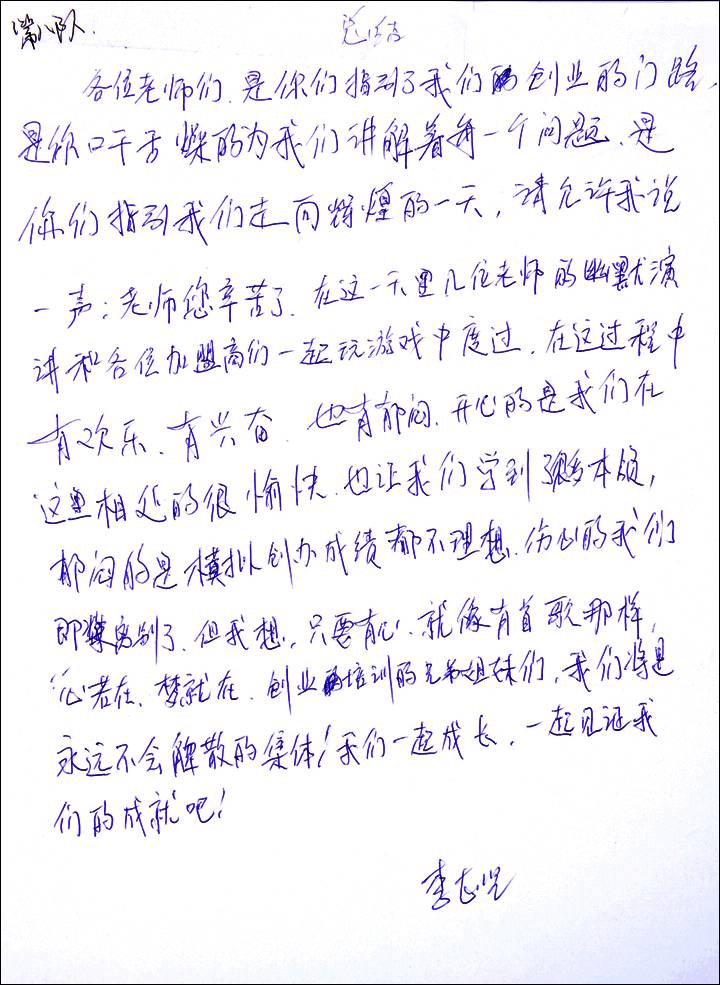 第八队.
总结
各位老师们.是你们指到了我们创业的门路,
是你口干舌燥的为我们讲解着每一个问题.是
你们指到我们走向辉煌的一天,请允许我说
一声:老师您辛苦了.在这一天里几位老师的幽默演
讲和各位加盟商们一起玩游戏中度过.在这过程中
有欢乐.有兴奋.也有郁闷.开心的是我们在
这里相处的很愉快.也让我们学到很多本领,
郁闷的是模拟创办成绩都不理想.伤心的我们
即将离别了.但我想,只要有心.就像有首歌那样,
心若在.梦就在.创业培训的兄弟姐妹们,我们将是
永远不会解散的集体!我们一起成长,一起见证我
们的成就吧!
李志